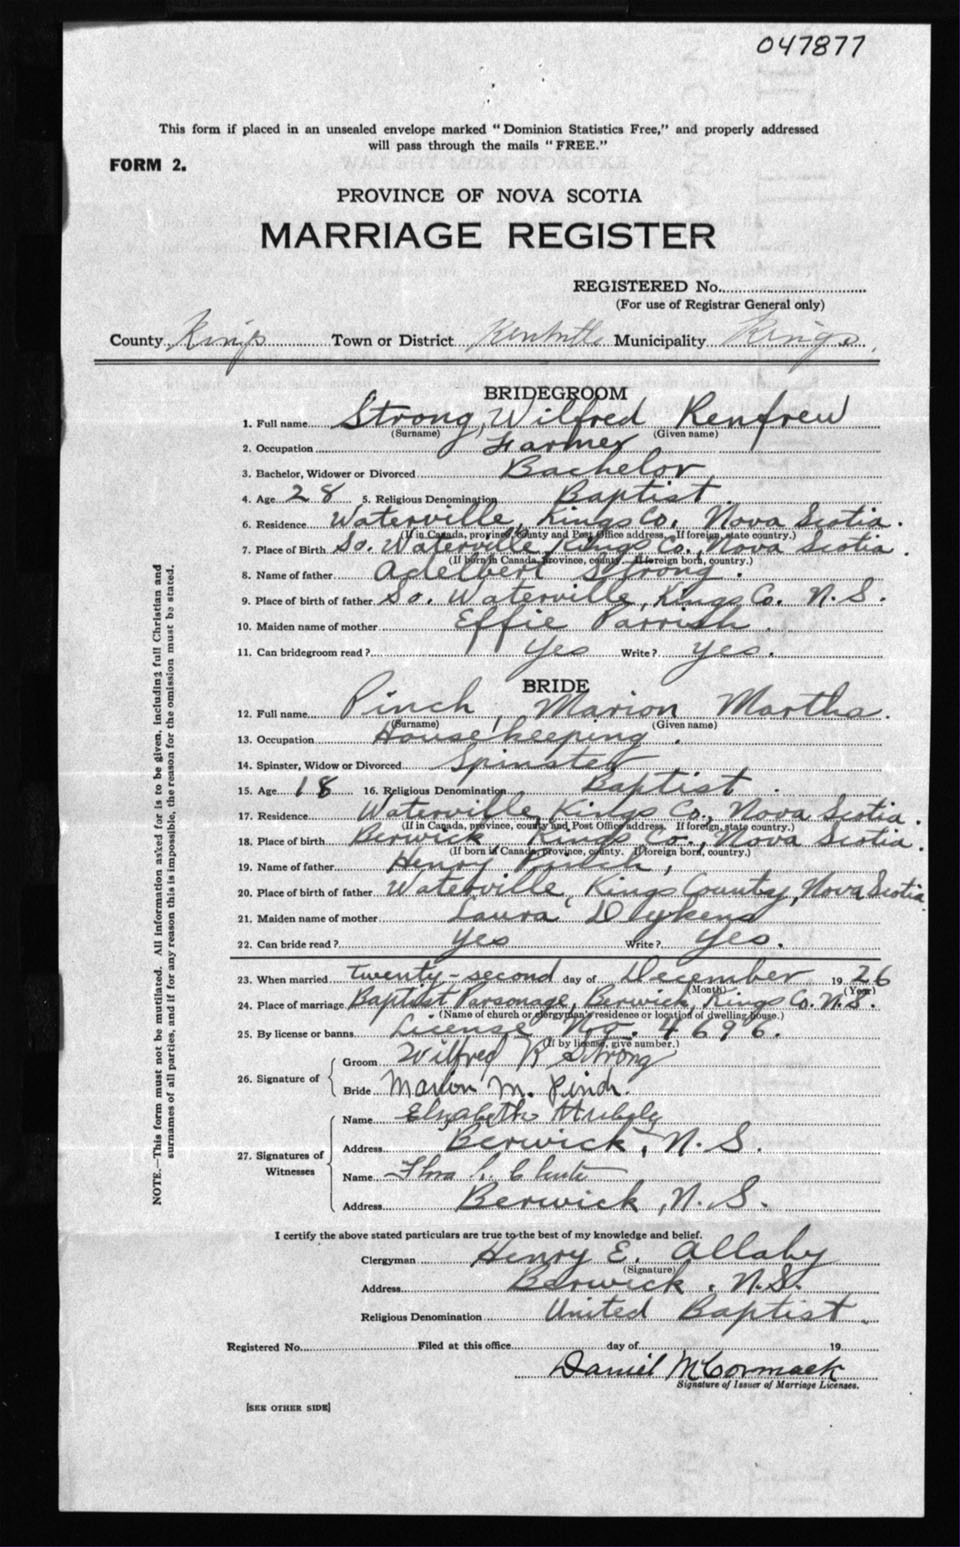 047877
This form if placed in an unsealed envelope marked "Dominion Statistics Free," and properly addressed
will pass through the mails "FREE."
FORM 2.
PROVINCE OF NOVA SCOTIA
MARRIAGE REGISTER
REGISTERED No.
(For use of Registrar General only)
County Kings Town or District Kentville Municipality Kings.
BRIDEGROOM
1. Full name Strong, Wilfred Renfrew
(Surname) (Given name)
2. Occupation Farmer
3. Bachelor, Widower or Divorced Bachelor
4. Age 28 5. Religious Denomination Baptist.
6. Residence Waterville, Kings Co. Nova Scotia.
(If in Canada, province, county and Post Office address. If foreign, state country.)
7. Place of Birth So. Waterville Kings Co., Nova Scotia.
(If born in Canada, province, county. If foreign born, country.)
8. Name of father Adelbert Strong.
9. Place of birth of father So. Waterville, Kings Co. N.S.
10. Maiden name of mother Effie Parrish
11. Can bridegroom read? Yes Write? yes.
BRIDE
12. Full name Pinch, Marion Martha.
(Surname) (Given name)
13. Occupation Housekeeping.
14. Spinster, Widow or Divorced Spinster
15. Age 18 16. Religious Denomination Baptist.
17. Residence Waterville, Kings Co., Nova Scotia.
(If in Canada, province, county and Post Office address. If foreign, state country.)
18. Place of birth Berwick, Kings Co., Nova Scotia.
(If born in Canada, province, county. If foreign born, country.)
19. Name of father Henry Pinch,
20. Place of birth of father Waterville, Kings County, Nova Scotia
21. Maiden name of mother Laura Dykens
22. Can bride read? yes Write? yes.
23. When married twenty-second day of December 1926
(Month) (Year)
24. Place of marriage Baptist Parsonage, Berwick, Kings Co. N.S.
(Name of church or clergyman's residence or location of dwelling house.)
25. By license or banns License No. 4696.
(If by license, give number.)
26. Signature of
Groom Wilfred R Strong
Bride Marion M. Pinch.
27. Signatures of Witnesses
Name Elizabeth
Address Berwick, N.S.
Name Flora Chute
Address Berwick, N.S.
I certify the above stated particulars are true to the best of my knowledge and belief.
Clergyman Henry E. Allaby
(Signature)
Address Berwick, N.S.
Religious Denomination United Baptist.
Registered No. Filed at this office day of 19
Daniel McCormack
Signature of Issuer of Marriage Licenses.
[SEE OTHER SIDE]
NOTE.—This form must not be mutilated. All information asked for is to be given, including full Christian and
surnames of all parties, and if for any reason this is impossible, the reason for the omission must be stated.